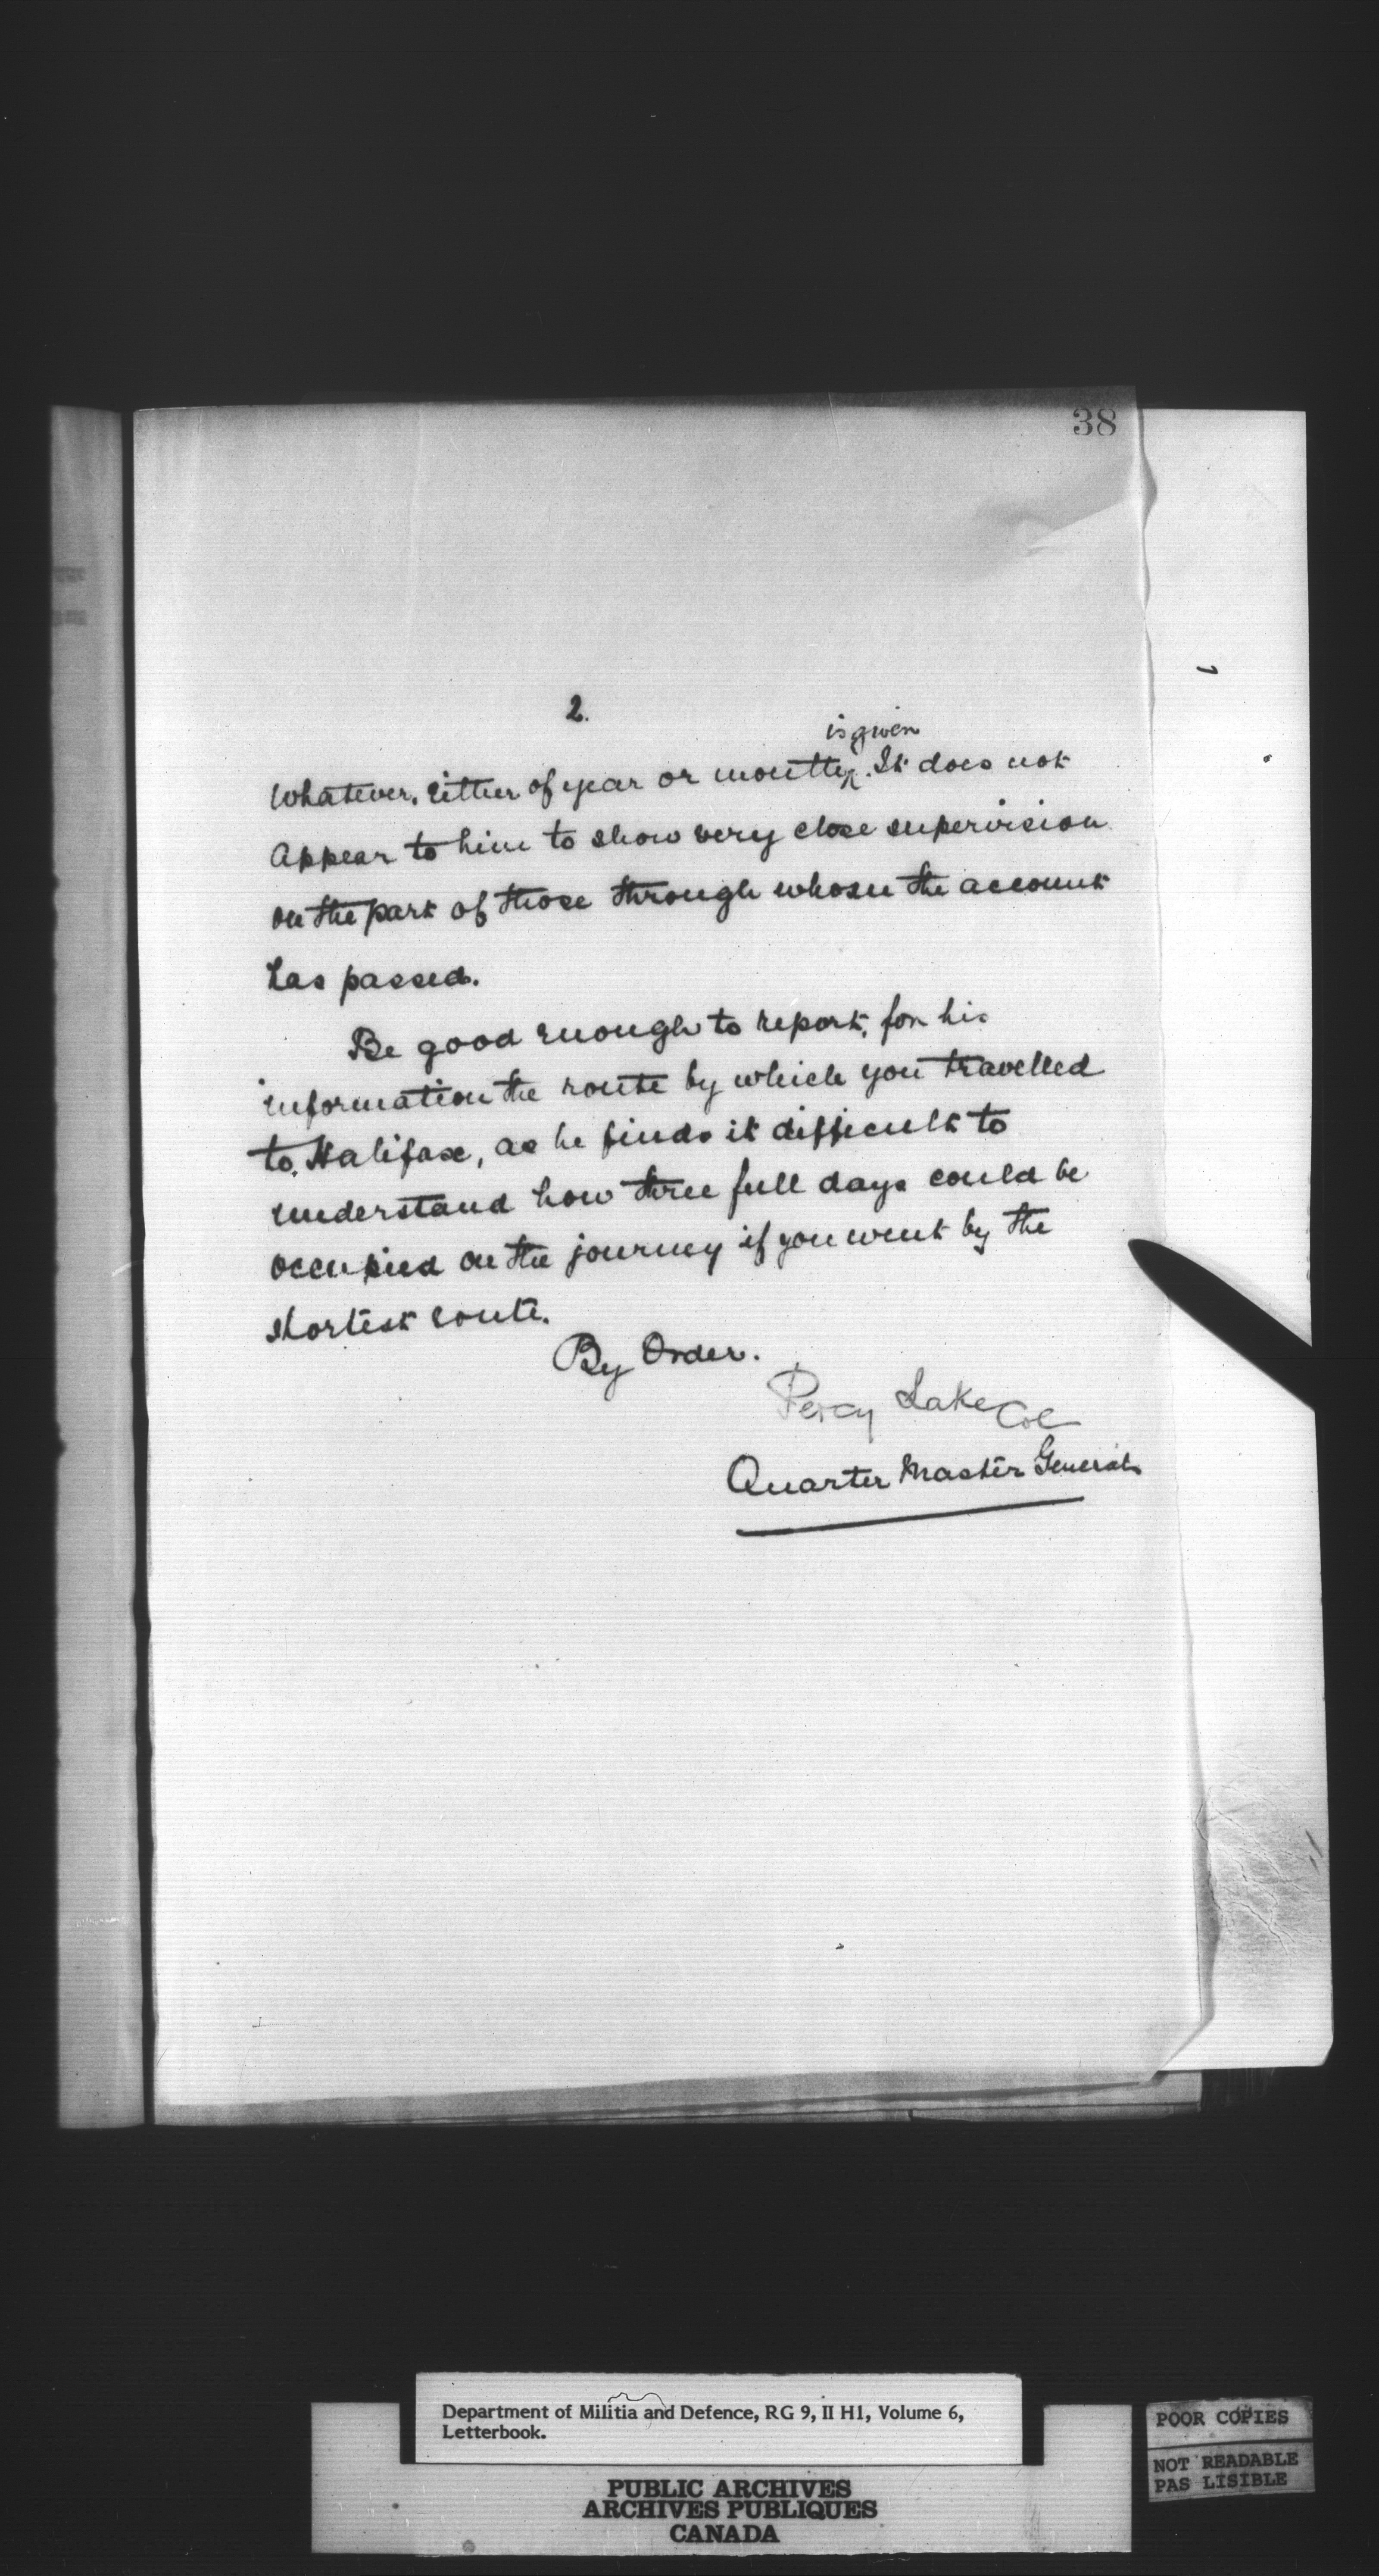 38
2.
is given
whatever, either of year or month ^. It does not
appear to him to show very close supervision
on the part of those through whose the account
has passed.
Be good enough to report, for his
information the route by which you travelled
to Halifax, as he finds it difficult to
understand how three full days could be
occupied on the journey if you went by the
shortest route.
By Order.
Percy Lake Col
Quarter Master General
Department of Militia and Defence, RG 9, II H1, Volume 6,
Letterbook.
PUBLIC ARCHIVES
ARCHIVES PUBLIQUES
CANADA
POOR COPIES
NOT READABLE
PAS LISIBLE